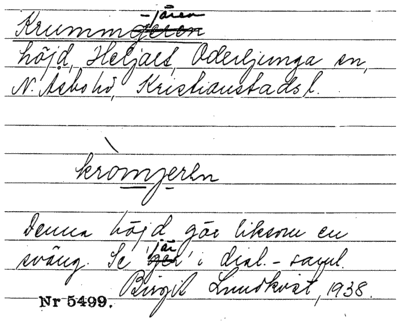 -jären
Krummgeren
höjd, Heljalt, Oderljunga sn,
N. Åsbo hd, Kristianstads l.
kròmjerln
Denna höjd gör liksom en
jär
sväng. Se 'ger' i dial.-saml.
Birgit Lundkvist, 1938.
Nr 5499.